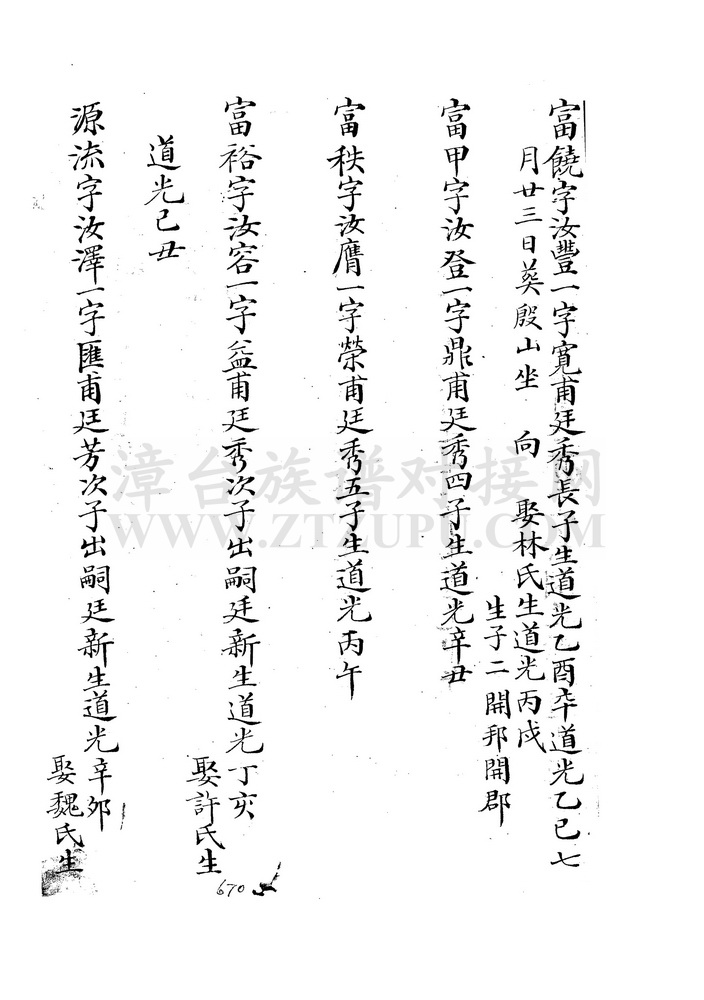 富饒字汝豐一字寬甫廷秀長子生道光乙酉卒道光乙巳七
月廿三日葬殷山坐　向　娶林氏生道光丙戌
生子二開邦開郡
富甲字汝登一字鼎甫廷秀四子生道光辛丑
富秩字汝膺一字榮甫廷秀五子生道光丙午
富裕字汝容一字益甫廷秀次子出嗣廷新生道光丁亥
娶許氏生
道光己丑
源流字汝澤一字匯甫廷芳次子出嗣廷新生道光辛卯
娶魏氏生
670
漳台族谱对接网
WWW.ZTZUPU.COM